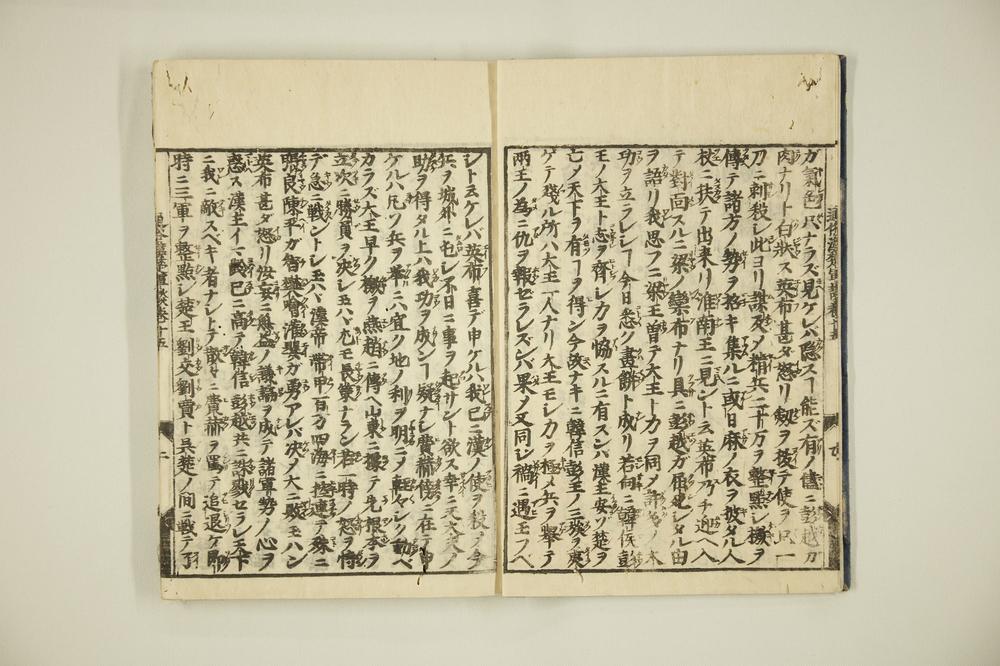 ガ氣色只ナラズ見ケレバ隠スヿ能ズ有ノ儘ニ彭越ガ
肉ナリト白狀ス英布甚ダ怒リ劔ヲ拔テ使ヲ只一
刀ニ刺殺シ此ヨリ謀反メ精兵二十万ヲ整㸃シ檄ヲ
傳テ諸方ノ勢ヲ招キ集ルニ或日麻ノ衣ヲ披タル人
杖ニ扶テ出来リ淮南王ニ見ント云英布乃チ迎ヘ入
テ對面スルニ梁ノ欒布ナリ具ニ彭越ガ屈死シタル由
ヲ語リ我思フニ梁王曽テ大王ト力ヲ同メ許多ノ
功ヲ立ラレシヿ今日悉ク畫餅ト成リ若伺ニ韓侯彭
王ノ大王ト志ヲ齊シ力ヲ恊スルニ有スンバ漢主安ゾ楚ヲ
亡メ天下ヲ有ツヿヲ得ン今故ナキニ韓信彭王ノ三族ヲ夷
ゲテ殘ル所ハ大王一人ナリ大王モシ力ヲ極メ兵ヲ舉テ
兩王ノ為ニ仇ヲ報セラレズンバ果メ又同シ禍ニ遇玉フベ
シト云ケレバ英布喜デ申ケルハ我已ニ漢ノ使ヲ殺メ今
兵ヲ城外ニ屯シ不日ニ事ヲ起サント欲ス幸ニ大夫ノ
助ヲ得タル上ハ我功ヲ成ンヿ疑ナシ賁赫傍ニ在テ申
ケルハ凡ソ兵ヲ舉ニハ宜ク地ノ利ヲ明ニメ輕々シク動ベ
カラズ大王早ク檄ヲ燕趙ニ傳ヘ山東ニ據テ先根本ヲ
立次ニ勝負ヲ決シ玉ハヾ尤モ長策ナラン若一時ノ怒ヲ恃
デ急ニ戰ントシ玉ハヾ漢帝帶甲百万四海ニ控連テ殊ニ
張良陳平ガ智樊噲灌嬰ガ勇アレバ決メ大ニ敗玉ハン
英布甚ダ怒リ汝妄ニ無益ノ議論ヲ成テ諸軍勢ノ心ヲ
惑ス漢主イマ歳已ニ高テ韓信彭越共ニ誅戮セラレ天下
ニ我ニ敵スベキ者ナシトテ散々ニ賁赫ヲ罵テ追退ケ即
時ニ三軍ヲ整㸃シ楚王劉交劉賈ト呉楚ノ間ニ戰テ了